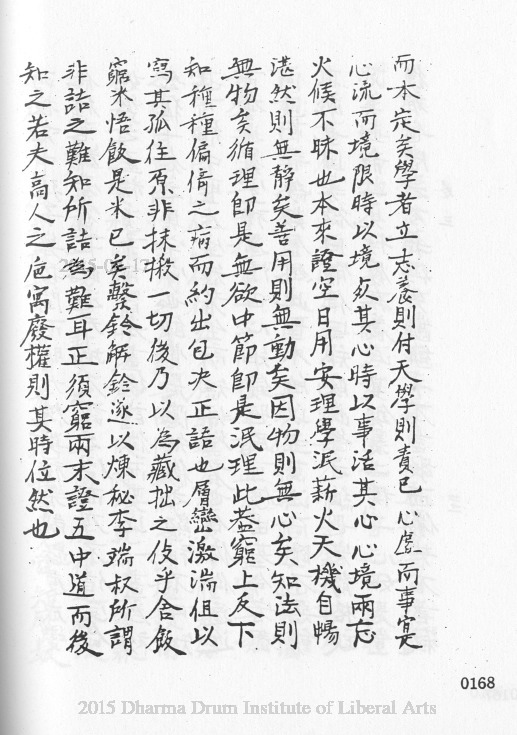 而本定矣學者立志養則付天學則責已心虛而事寔
心流而境限時以境煉其心時以事活其心心境兩忘
火候不昧也本來證空日用安理學泯薪火天機自暢
湛然則無靜矣善用則無動矣因物則無心矣知法則
無物矣循理即是無欲中節即是泯理此葢窮上反下
知種種偏倚之病而約出包決正語也層巒激湍但以
寫其孤住原非抹摋一切後乃以為藏拙之伎乎舍飯
窮米悟飯是米已矣繫鈴解鈴遂以煉秘李瑞叔所謂
非詰之難知所詰為難耳正須窮兩末證五中道而後
知之若夫高人之卮寓廢權則其時位然也
0168
2015 Dharma Drum Institute of Liberal Arts